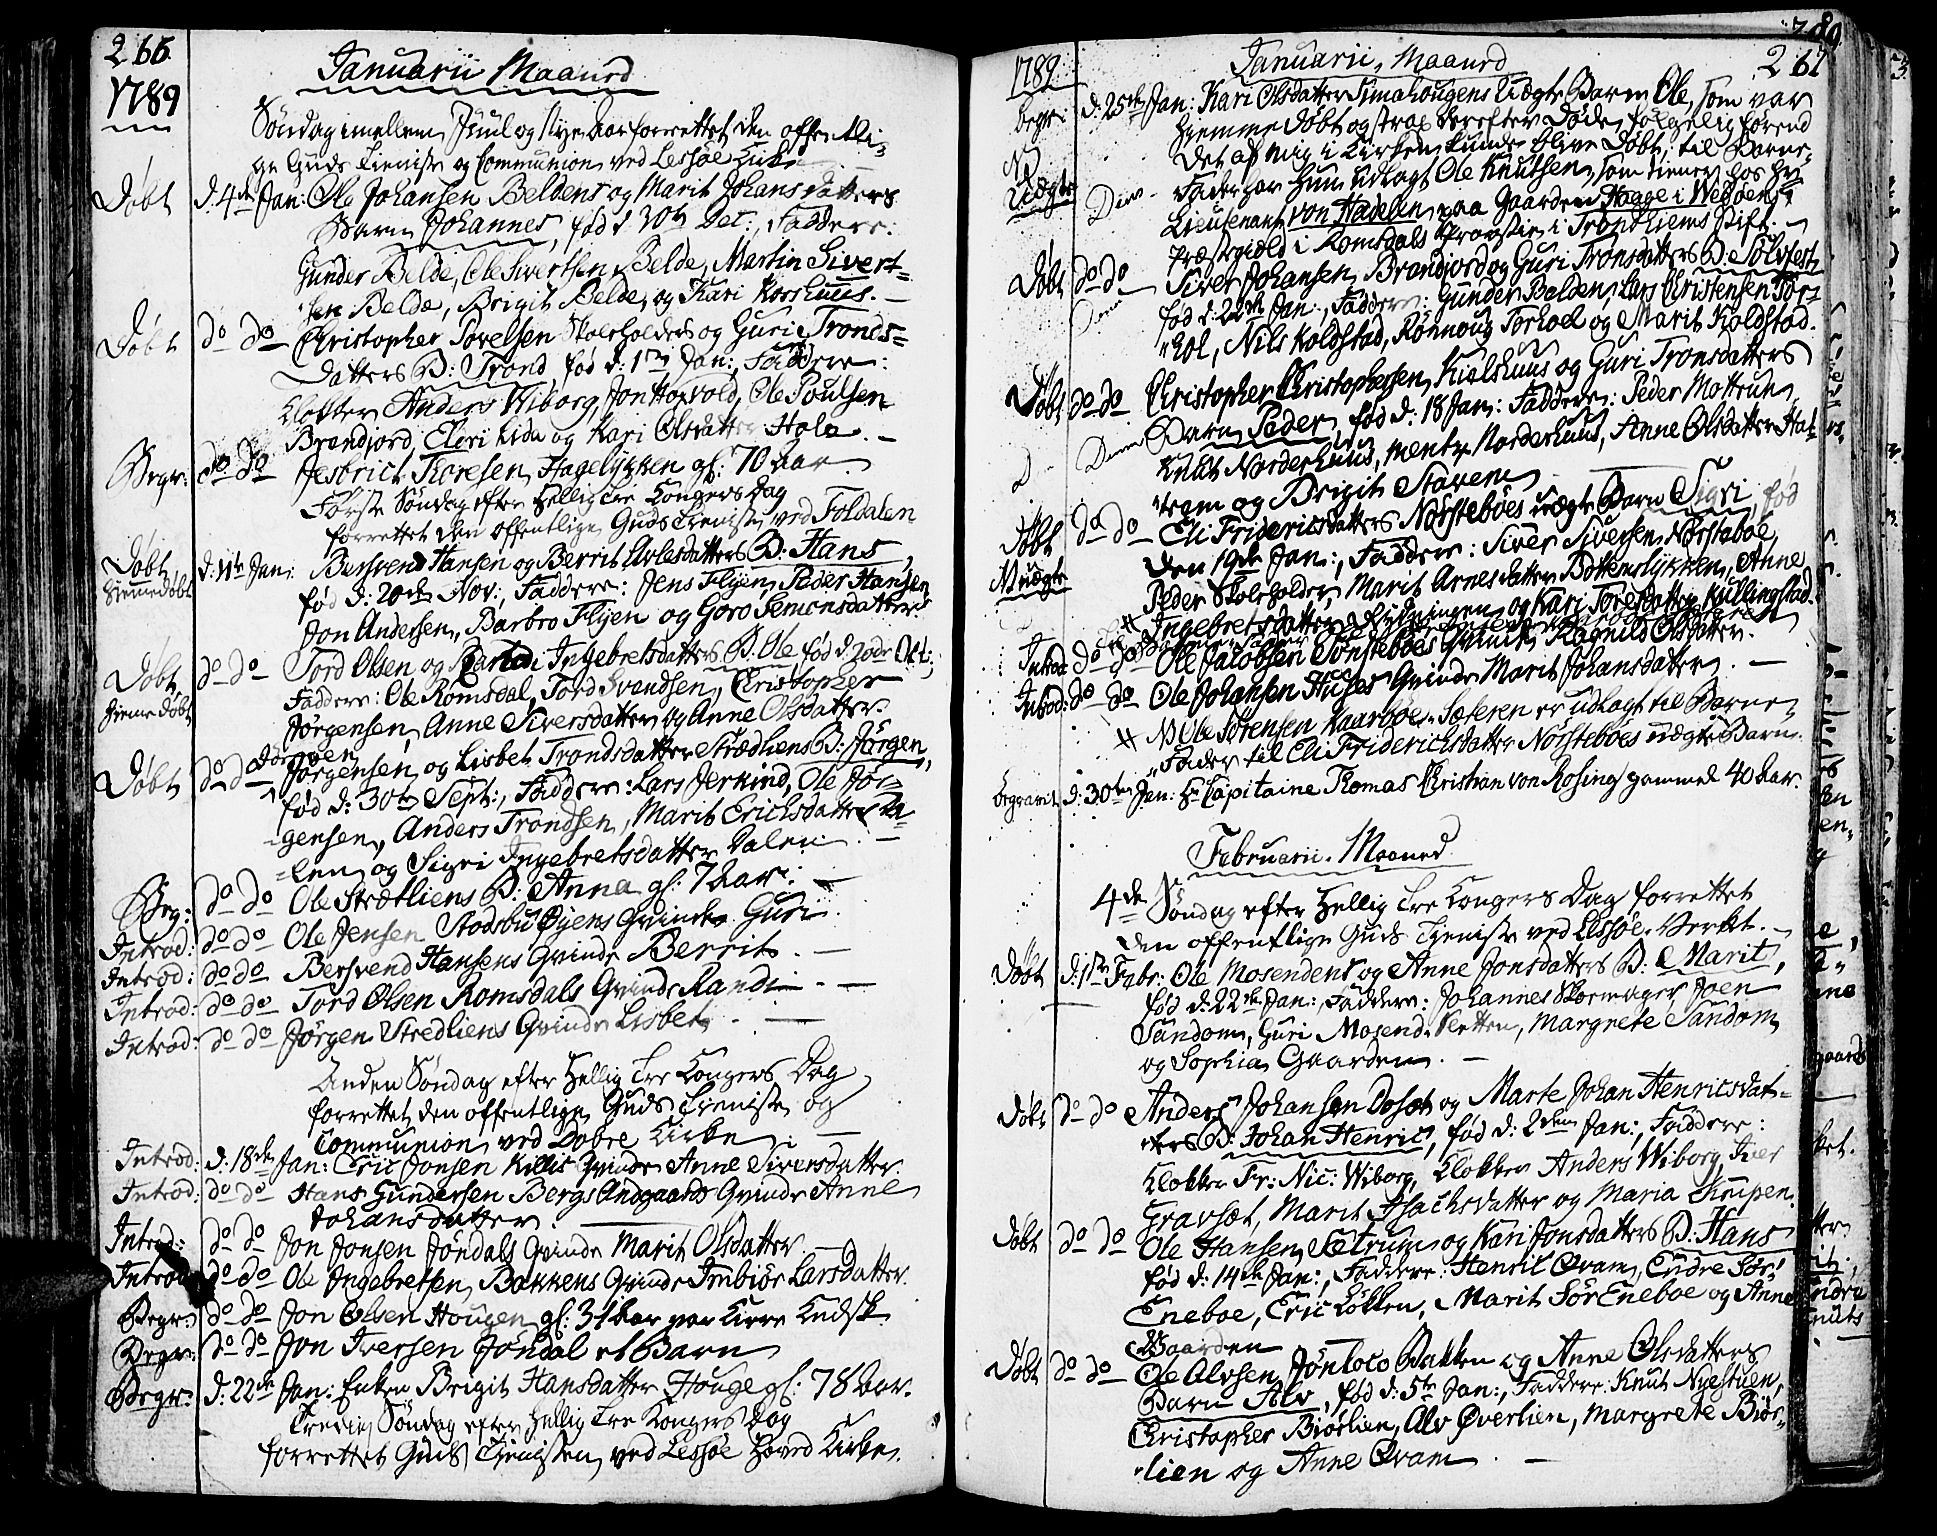 266
1789
Januarii Maaned
Søndag imellem Juul og Nye Aar forrettet den offentli-
ge Guds Tieniste og Communion ved Lessøe Kirke
Døbt d. 4de Jan: Ole Johansen Beldens og Marit Johansdatters
Barn Johannes, fød d. 30te Dec:, Faddere:
Gunder Belde, Ole Sivertsen Belde, Martin Sivert-
sen Belde, Brigit Belde og Kari Korshuus. —
Døbt do do Christopher Torelsen Skoleholders og Guri Tronds-
datters B: Trond fød d: 1ste Jan:, Faddere:
Klokker Anders Wiborg, Jon Horvold, Ole Poulsen
Brandjord, Eleri Lida og Kari Olsdatter Hole. —
Begr: do do Jestrich Thoresen Hagelykken gl: 70 Aar.
Første Søndag efter Hellig Tre Kongers Dag
forrettet den offentlige Guds Tieniste ved Foldalen
Døbt d: 11te Jan: Bersvend Hansen og Berrit Avlesdatters B: Hans,
Hiemedøbt fød d: 20de Nov:, Faddere: Jens Flyen, Peder Hansen
Jon Andersen, Barbro Flyen og Goro Semonsdatter
Døbt do do Tord Olsen og Randi Ingebretsdatters B. Ole fød d. 20de Oct:,
Hieme døbt Faddere: Ole Romsdal, Tord Svendsen, Christopher
Jørgensen, Anne Siversdatter og Anne Olsdatter.
Jørgen
Døbt do do Jørgensen og Lisbet Trondsdatter Strædliens B: Jørgen,
fød d: 30te Sept:, Faddere: Lars Jerkind, Ole Jør-
gensen, Anders Trondsen, Marit Erichsdatter Da-
len og Sigri Ingebretsdatter Dalen. —
Begr: do do Ole Strætliens B: Anna gl: 7 Aar. —
Introd: do do Ole Jensen Stadsbu Øyens Qvinde Guri
Introd: do do Bersvend Hansens Qvinde Berrit. —
Introd: do do Tord Olsen Romsdals Qvinde Randi. —
Introd: do do Jørgen Strædliens Qvinde Lisbet. —
Anden Søndag efter Hellig Tre Kongers Dag
forrettet den offentlige Guds Tieniste og
Communion ved Dobre Kirke —
Introd: d: 18de Jan: Eric Jonsen Killis Qvinde Anne Siversdatter.
Introd: do do Hans Gundersen Bergs Qvinde Anne
Johansdatter.
Introd: do do Jon Jonsen Jøndals Qvinde Marit Olsdatter
Introd: do do Ole Ingebretsen Bakkens Qvinde Imbiør Larsdatter.
Begr: do do Jon Olsen Hougen gl: 31 Aar
Begr: do do Jon Iversen Jøndal et Barn
Begr: d: 22de Jan: Enken Brigit Hansdatter Houge gl: 78 Aar.
Tredie Søndag efter Hellig Tre Kongers Dag
forrettet Guds Tienisten ved Lessøe Hoved Kirke.
1789. Januarii Maaned 267
Begr: d: 25de Jan: Kari Olsdatter Simahougens Uægte Barn Ole, som var
hiemme døbt og strax derefter døde, følgelig førend
NB det af mig i Kirken kunde blive døbt; til Barne-
Uægte Fader har hun udlagt Ole Knutsen, som tiener hos Hr
Lieutenant von Hadelen paa Gaarden
Præstegield i Romsdals Provstie i Trondhiems Stift. —
Døbt do do Siver Johansen Brandjord og Guri Tronsdatters B: Solvfest,
fød d. 22de Jan:, Faddere: Gunder Belden, Lars Christensen Tor-
hol, Nils Koldstad, Rønnoug Torhol og Marit Koldstad.
Døbt do do Christopher Christophersen Kielshuus og Guri Tronsdatters
Barn Peder, fød d. 18 Jan: Faddere: Peder Mottrun,
Knut Norderhuus, Norderhuus, Anne Olsdatter Hat-
trem og Brigit Staven
Døbt do do Eli Friderichsdatters Nørstebøes uægte Barn Sigri, fød
N uægte den 19de Jan:, Faddere: Siver Siversen Nørsteboe,
Peder Skoleholder, Marit Arnesdatter Bottenslykken, Anne
Ingebretsdatter og Kari Toresdatter Kullingstad.
Introd do do Ole Jacobsen Tonstebøes Qvinde Ragnild Olsdatter.
Introd: do do Ole Johansen Huses Qvinde Marit Johansdatter. —
# N Ole Sørensen Kaarbøe-Sæteren er udlagt til Barne-
Fader til Eli Friderichsdatter Nørstebøes uægte Barn.
Begravet d: 30te Jan: Hr Capitaine Thomas Christian von Rosing gammel 40 Aar.
Februarii Maaned
4de Søndag efter Hellig Tre Kongers Dag forrettet
den offentlige Guds Tieniste ved Lessøe-Verket. —
Døbt d: 1ste Febr: Ole Mosendens og Anne Jonsdatters B: Marit,
fød d: 22de Jan:, Faddere: Johannes Skoemager, Joen
Sandom, Guri Mosend-Sletten, Margrete Sandom
og Sophia Gaarden. —
Døbt do do Anders Johansen Doset og Marte Johan Henricsdat-
ters B: Johan Henric, fød d: 2den Jan:, Faddere:
Klokker Fr: Nic: Wiborg, Klokker Anders Wiborg, Iver
Gravset, Marit Isachsdatter og Maria Krupen.
Døbt do do Ole Hansen Setrum og Kari Jonsdatters B: Hans
fød d: 14de Jan:, Faddere: Henric Qvam, Endre Sør-
Eneboe, Eric Løkken, Marit Sør Eneboe og Anne
Gaarden
Døbt do do Ole Alvsen Jønloco Bakken og Anne Olsdatters
Barn Alv, fød d: 5te Jan:, Faddere: Knut Nyestuen,
Christopher Biørlien, Alv Øverlien, Margrete Biør-
lien og Anne Qvam. —